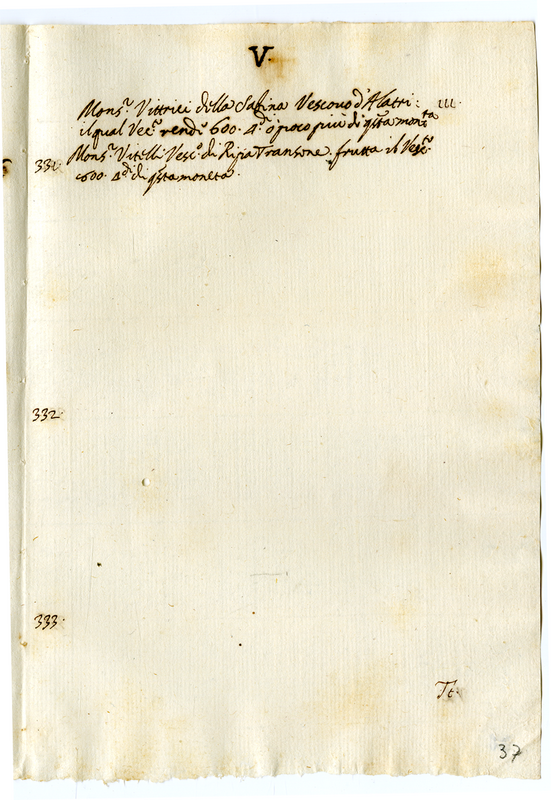 V.
Mons.r Vittrici della Sabina Vescovo d'Alatri: 111.
il qual Vec.o rend.e 600. d.ti ò poco più di q̃sta mon.ta
331. Mons.r Vitelli Vesc.o di Ripa Transone. frutta il Vesc.to
600. d.ti di q̃sta moneta.
332.
333.
Tt.
37